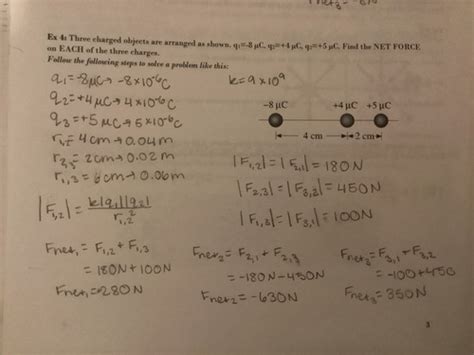 Ex 4: Three charged objects are arranged as shown. q₁=-8 μC, q₂=+4 μC, q₃=+5 μC. Find the NET FORCE
on EACH of the three charges.
Follow the following steps to solve a problem like this:
q₁=-8μC→ -8×10⁻⁶C
k=9×10⁹
q₂=+4μC→4×10⁻⁶C
q₃=+5μC→5×10⁻⁶C
r₁,₂=4cm→0.04m
r₂,₃=2cm→0.02m
r₁,₃=6cm→0.06m
-8 μC +4 μC +5 μC
4 cm 2 cm
|F₁,₂|= k|q₁||q₂| / r₁,₂²
|F₁,₂|=|F₂,₁|=180N
|F₂,₃|=|F₃,₂|=450N
|F₁,₃|=|F₃,₁|=100N
Fnet₁=F₁,₂+F₁,₃
=180N+100N
Fnet₁=280N
Fnet₂=F₂,₁+F₂,₃
=-180N-450N
Fnet₂=-630N
Fnet₃=F₃,₁+F₃,₂
=-100+450
Fnet₃=350N
3